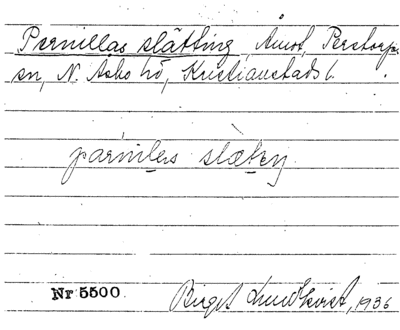 Pernillas slätting, Åmot, Perstorps
sn, N. Åsbo hd, Kristianstads l.
pærnilas slætıŋ
Nr 5500 Birgit Lundkvist, 1936